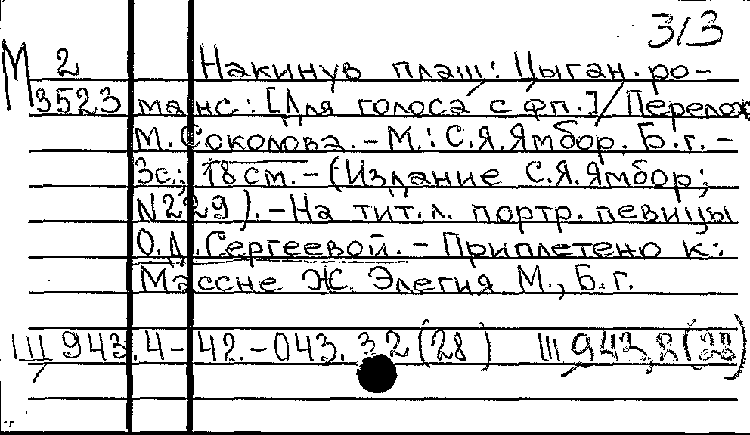 3/3
М 2 Накинув плащ: Цыган. ро-
3523 манс: [Для голоса с фп.] / Перелож
М. Соколова. - М.: С.Я. Ямбор. Б.г. -
3с.; 18 см. - (Издание С.Я. Ямбор;
N229). - На тит.л. портр. певицы
О.Д. Сергеевой. - Приплетено к:
Массне Ж. Элегия М., Б.г.
Щ 943.4-42.-043.32(28) Щ 943,8(28)